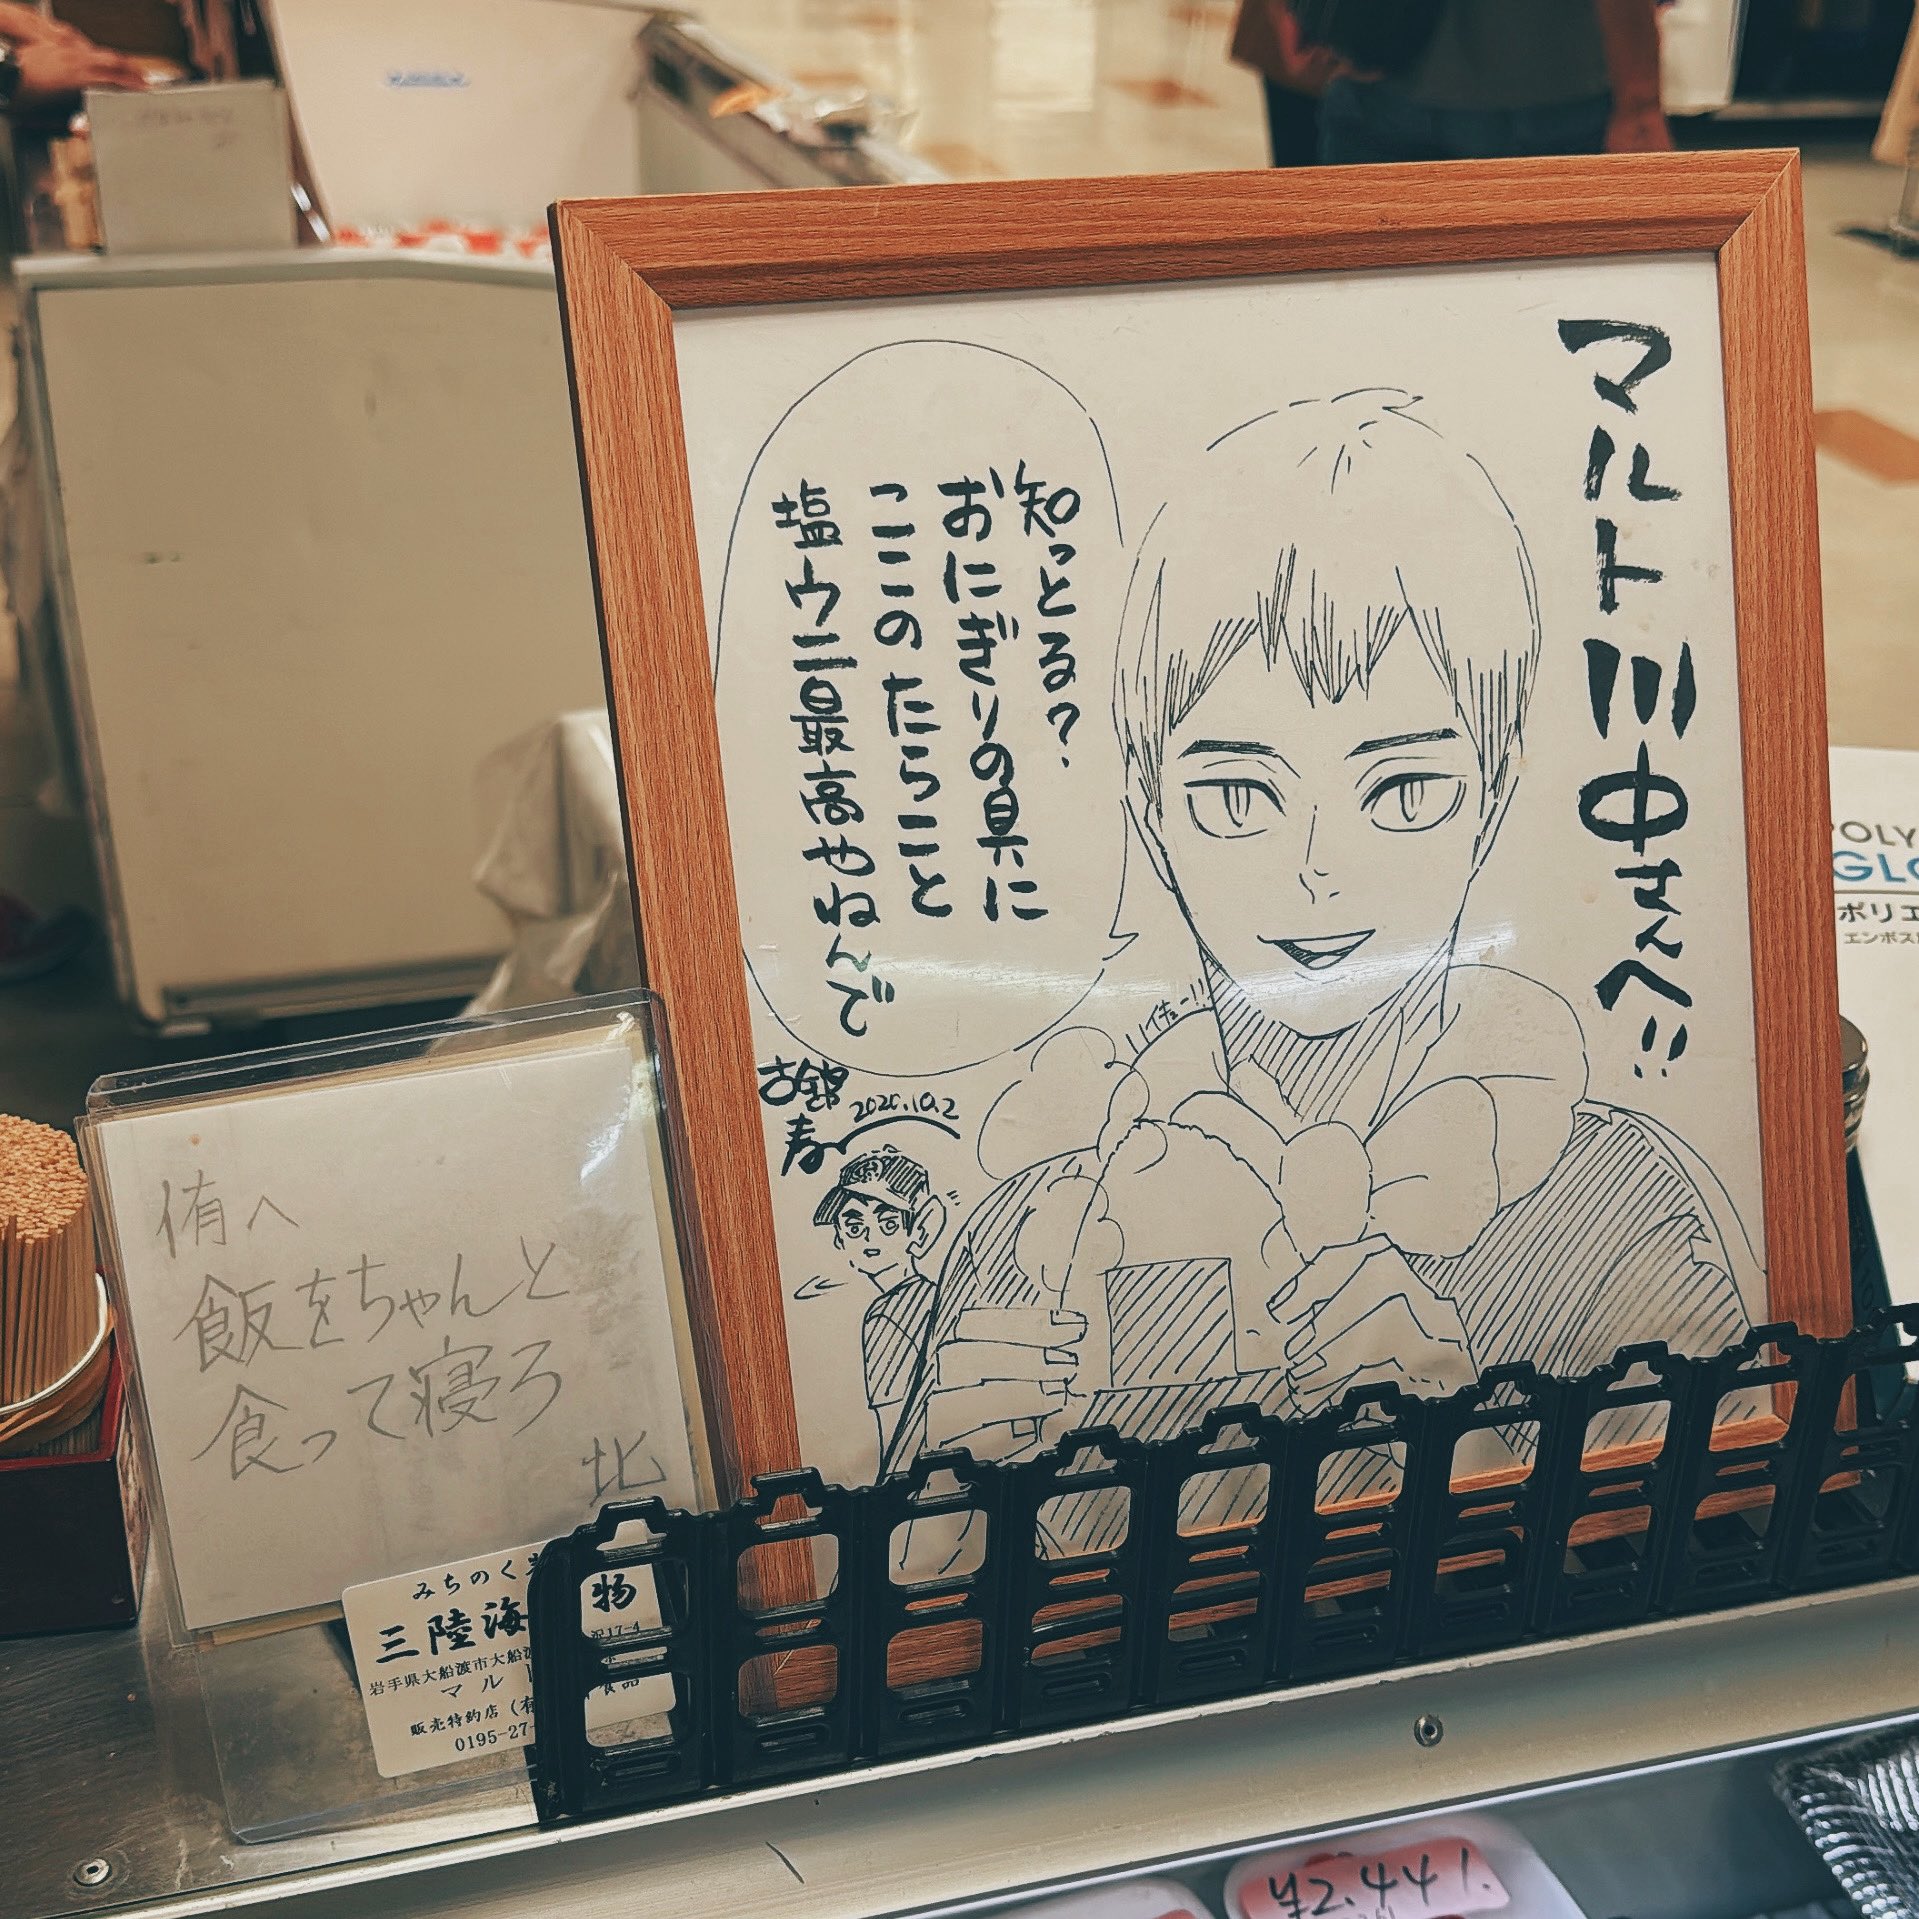 マルト川中さんへ!!
知っとる?
おにぎりの具に
ここのたらこと
塩ウニ最高やねんで
古舘
春一
2020.10.2
侑へ
飯をちゃんと
食って寝ろ
北
みちのく
三陸海
物
岩手県大船渡市大船渡
沢17-4
マルト
食品
販売特約店(有
0195-27-
ポリエ
エンボス
GL
¥2,441.